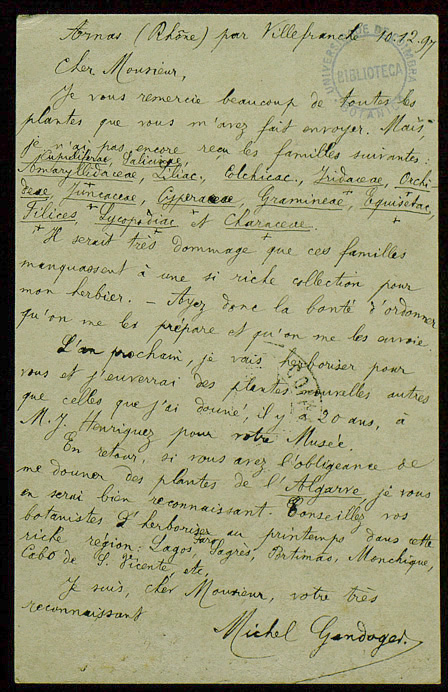 Arnas (Rhône) par Villefranche 10.12.97
UNIVERSIDADE DE COIMBRA
BIBLIOTECA
BOTANICA
Cher Monsieur,
Je vous remercie beaucoup de toutes les
plantes que vous m'avez fait envoyer. Mais,
je n'ai pas encore reçu les familles suivantes :
Cupuliferae, Salicineae,
Amaryllidaceae, Liliac., Colchicac., Iridaceae, Orchi
deae, Juncaceae, Cyperaceae, Gramineae, Equisetac,
Filices, Lycopodiac et Characeae.
Il serait très dommage que ces familles
manquassent à une si riche collection pour
mon herbier. — Ayez donc la bonté d'ordonner
qu'on me les prépare et qu'on me les envoie.
L'an prochain, je vais herboriser pour
vous et j'enverrai des plantes nouvelles autres
que celles que j'ai donné, il y a 20 ans, à
M. J. Henriquez pour votre Musée.
En retour, si vous avez l'obligeance de
me donner des plantes de l'Algarve, je vous
en serai bien reconnaissant. Conseillez vos
botanistes d'herboriser au printemps dans cette
riche région : Lagos, Faro, Sagres, Portimao, Monchique,
Cabo de S. Vicente, etc.
Je suis, cher Monsieur, votre très
reconnaissant
Michel Gandoger.